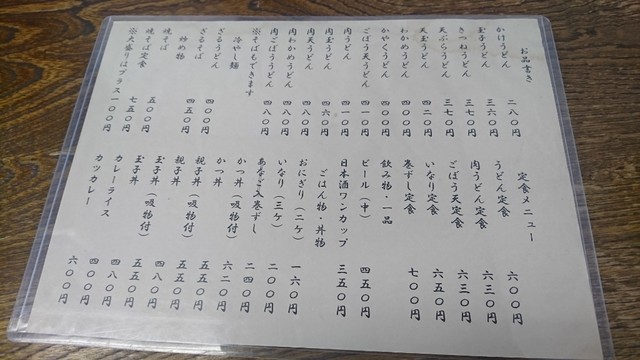 お品書き
かけうどん 二八〇円
玉子うどん 三六〇円
きつねうどん 三七〇円
天ぷらうどん 三七〇円
天玉うどん 四二〇円
わかめうどん 四〇〇円
かやくうどん 四〇〇円
ごぼう天うどん 四一〇円
肉うどん 四一〇円
肉玉うどん 四六〇円
肉天うどん 四八〇円
肉わかめうどん 四八〇円
肉ごぼううどん 四八〇円
※そばもできます
冷やし麺
ざるうどん 四〇〇円
ざるそば 四五〇円
炒め物
焼そば 五〇〇円
焼そば定食 七五〇円
※大盛りはプラス一〇〇円
定食メニュー
うどん定食 六〇〇円
肉うどん定食 六三〇円
ごぼう天定食 六三〇円
いなり定食 六五〇円
巻ずし定食 七〇〇円
飲み物・一品
ビール（中） 四五〇円
日本酒ワンカップ 三五〇円
ごはん物・丼物
おにぎり（二ケ） 一六〇円
いなり（三ケ） 二〇〇円
あなご入巻ずし 二四〇円
かつ丼（吸物付） 六二〇円
かつ丼 五五〇円
親子丼（吸物付） 五五〇円
親子丼 四八〇円
玉子丼（吸物付） 五五〇円
玉子丼 四八〇円
カレーライス 四〇〇円
カツカレー 六〇〇円